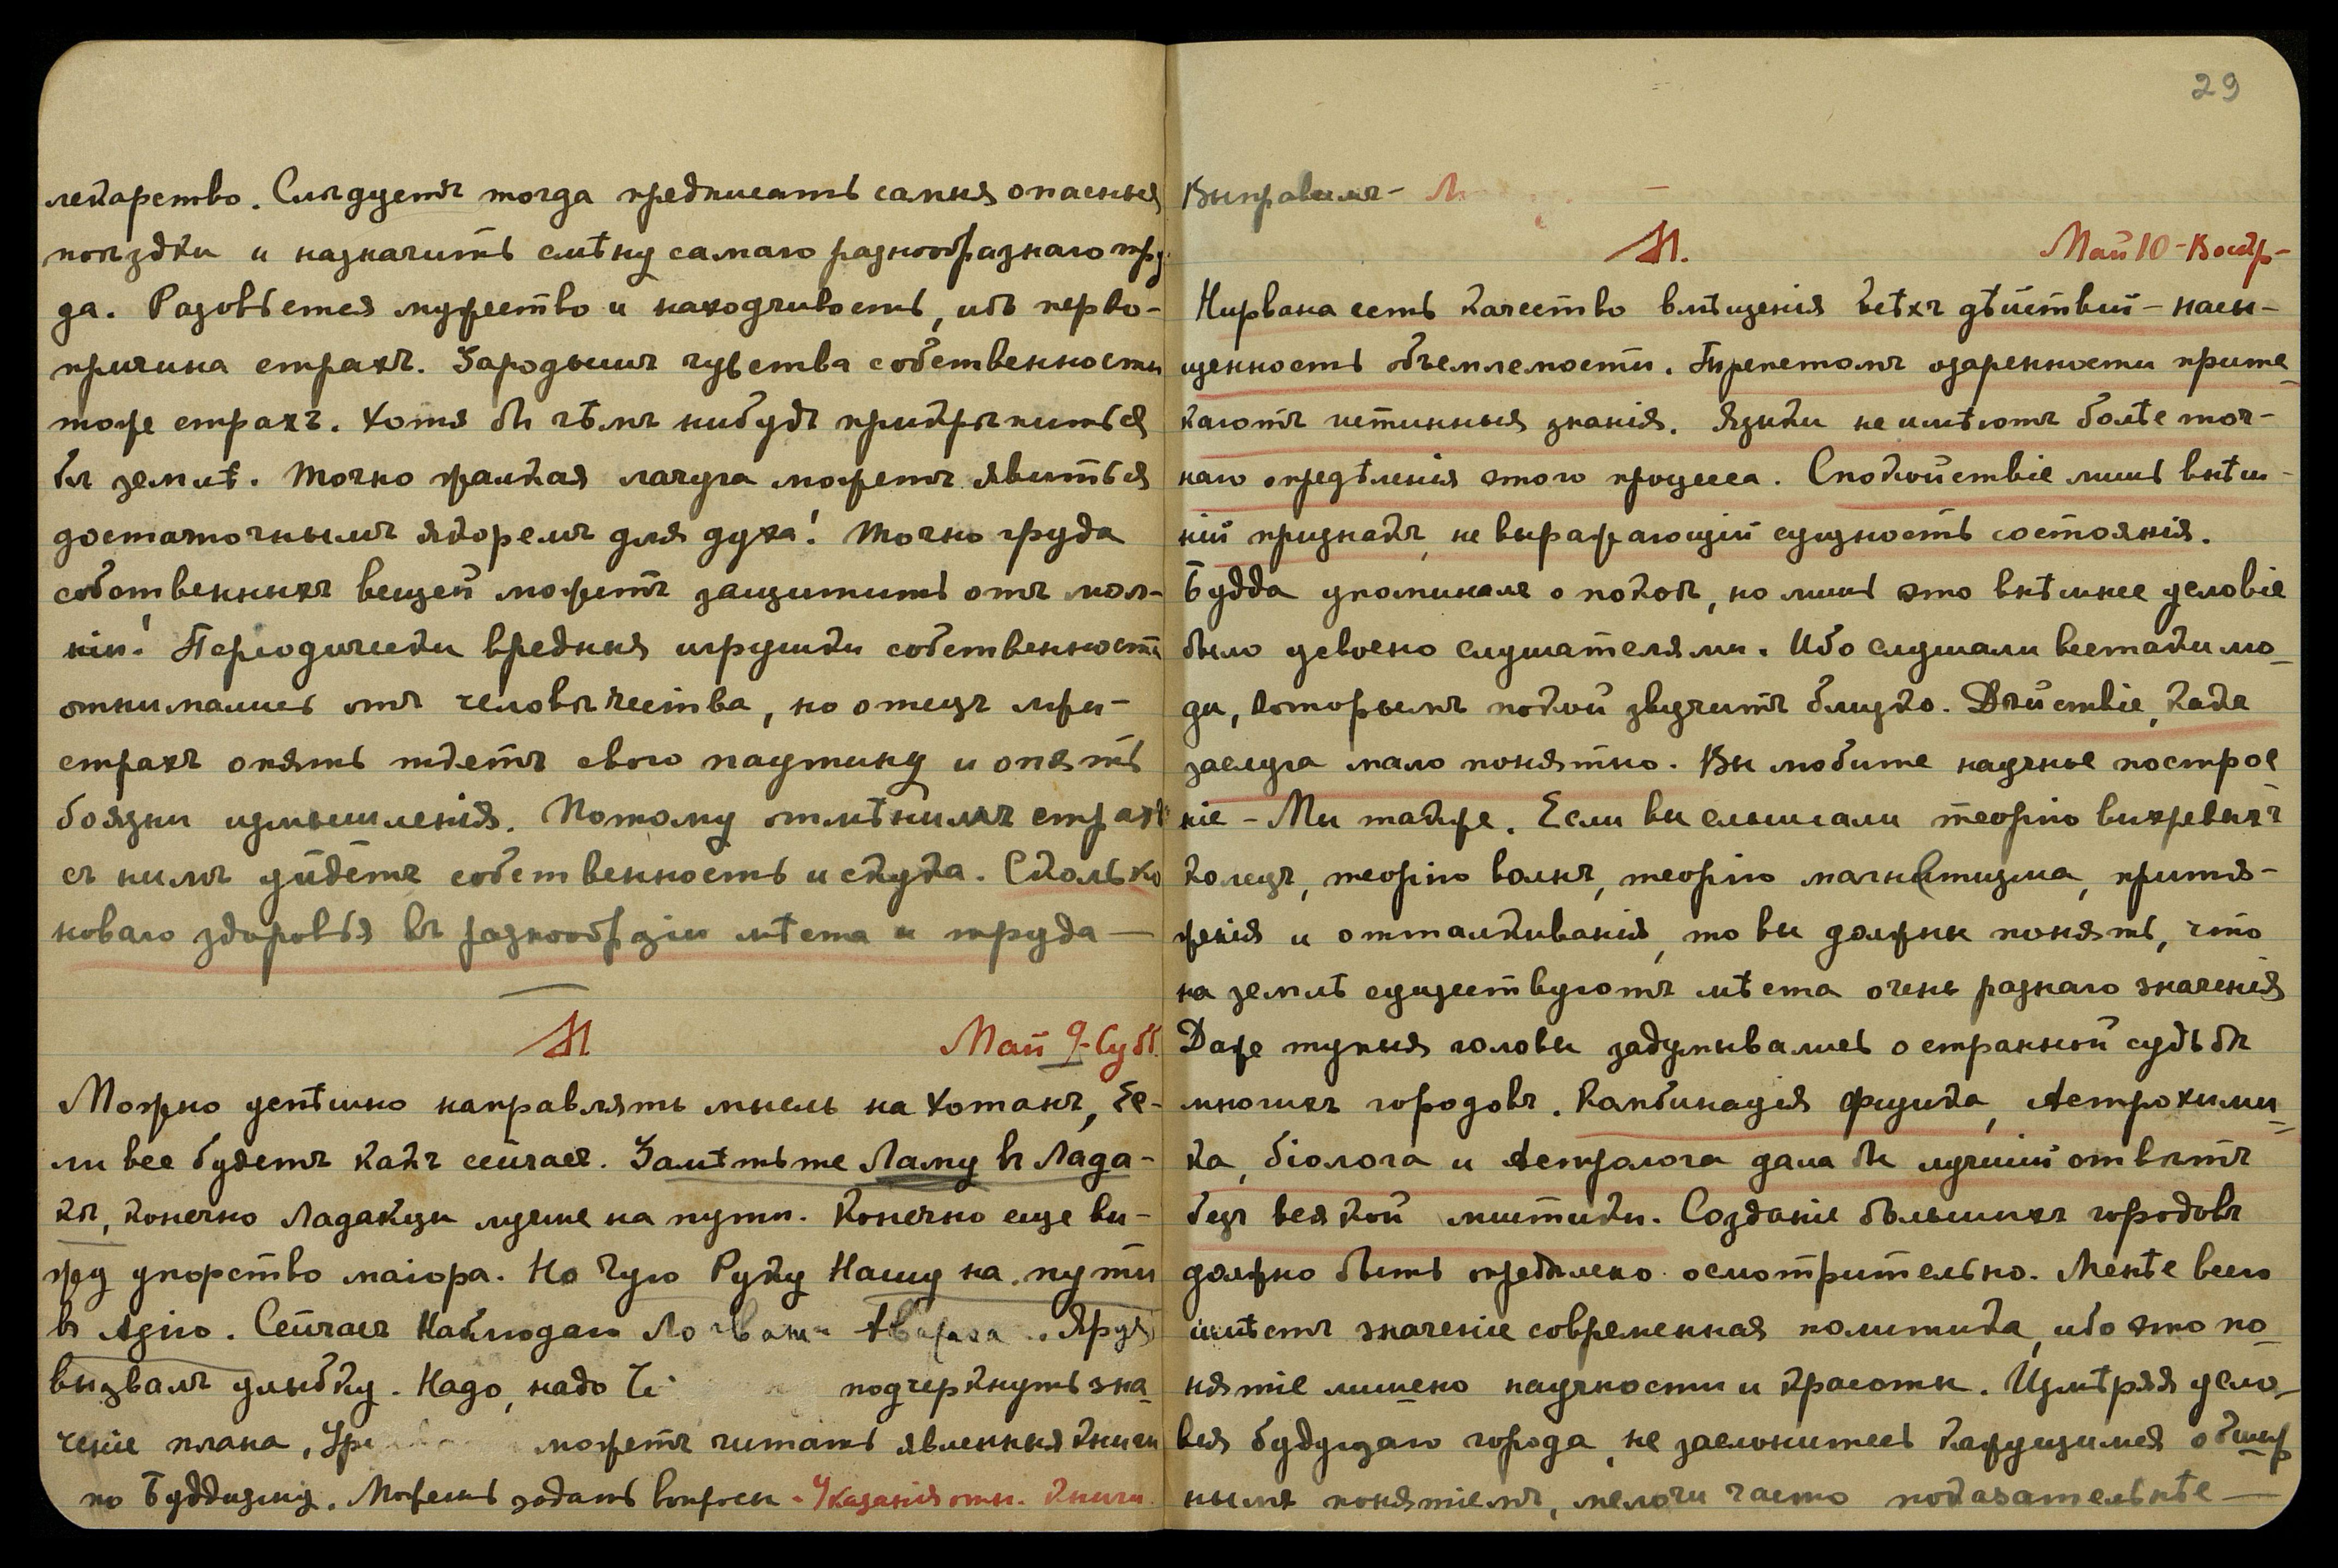 лекарство. Слѣдуетъ тогда предписать самыя опасныя
поѣздки и назначить смѣну самаго разнообразнаго тру-
да. Разовьется мужество и находчивость, ибо перво-
причина страхъ. Зародышъ чувства собственности
тоже страхъ. Хотя бы чѣмъ нибудь прикрѣпиться
къ землѣ. Точно жалкая лачуга можетъ явиться
достаточнымъ якоремъ для духа! Точно груда
собственныхъ вещей можетъ защитить отъ мол-
ніи! Періодически вредныя игрушки собственности
отнимались отъ человѣчества, но отецъ лжи-
страхъ опять ткетъ свою паутину и опять
боязни измышленія. Потому отмѣнимъ страхъ
съ нимъ уйдетъ собственность и скука. Сколько
новаго здоровья въ разнообразіи мѣста и труда —
М
Май 9-Субб.
Можно успѣшно направлять мысль на Хотанъ, Ес-
ли все будетъ какъ сейчасъ. Замѣтьте Ламу въ Лада-
кѣ, конечно Ладакцы лучше на пути. Конечно еще ви-
жу упорство маіора. Но Чую Руку Нашу на пути
въ Азію. Сейчасъ Наблюдаю Яруя
вызвалъ улыбку. Надо, надо подчеркнуть зна-
ченіе плана, можетъ читать явленныя книги
по Буддизму. Можешь задать вопросы - Указанія отн. книги.
29
Выправимъ -
М.
Май 10 - Воскр-
Нирвана есть качество вмѣщенія всѣхъ дѣйствій - насы-
щенность объемлемости. Трепетомъ озаренности прите-
каютъ истинныя знанія. Языки не имѣютъ болѣе точ-
наго опредѣленія этого процесса. Спокойствіе лишь внѣш-
ній признакъ, не выражающій сущность состоянія.
Будда упоминалъ о покоѣ, но лишь это внѣшнее условіе
было усвоено слушателями. Ибо слушали всетаки лю-
ди, которымъ покой звучитъ близко. Дѣйствіе, какъ
заслуга мало понятно. Вы любите научные построе
ніе - Мы также. Если вы слышали теорію вихревыхъ
колецъ, теорію волнъ, теорію магнетизма, притя-
женія и отталкиванія, то вы должны понять, что
на землѣ существуютъ мѣста очень разнаго значенія
Даже тупыя головы задумывались о странной судьбѣ
многихъ городовъ. Комбинація физика, Астрохими-
ка, біолога и Астролога дала бы лучшій отвѣтъ
безъ всякой мистики. Созданіе большихъ городовъ
должно быть опредѣлено осмотрительно. Менѣе всего
имѣетъ значеніе современная политика, ибо это по-
нятіе лишено научности и красоты. Измѣряя усло-
вія будущаго города, не заслонитесь кажущимся обшир
нымъ понятіемъ, мелочи часто показательнѣе —